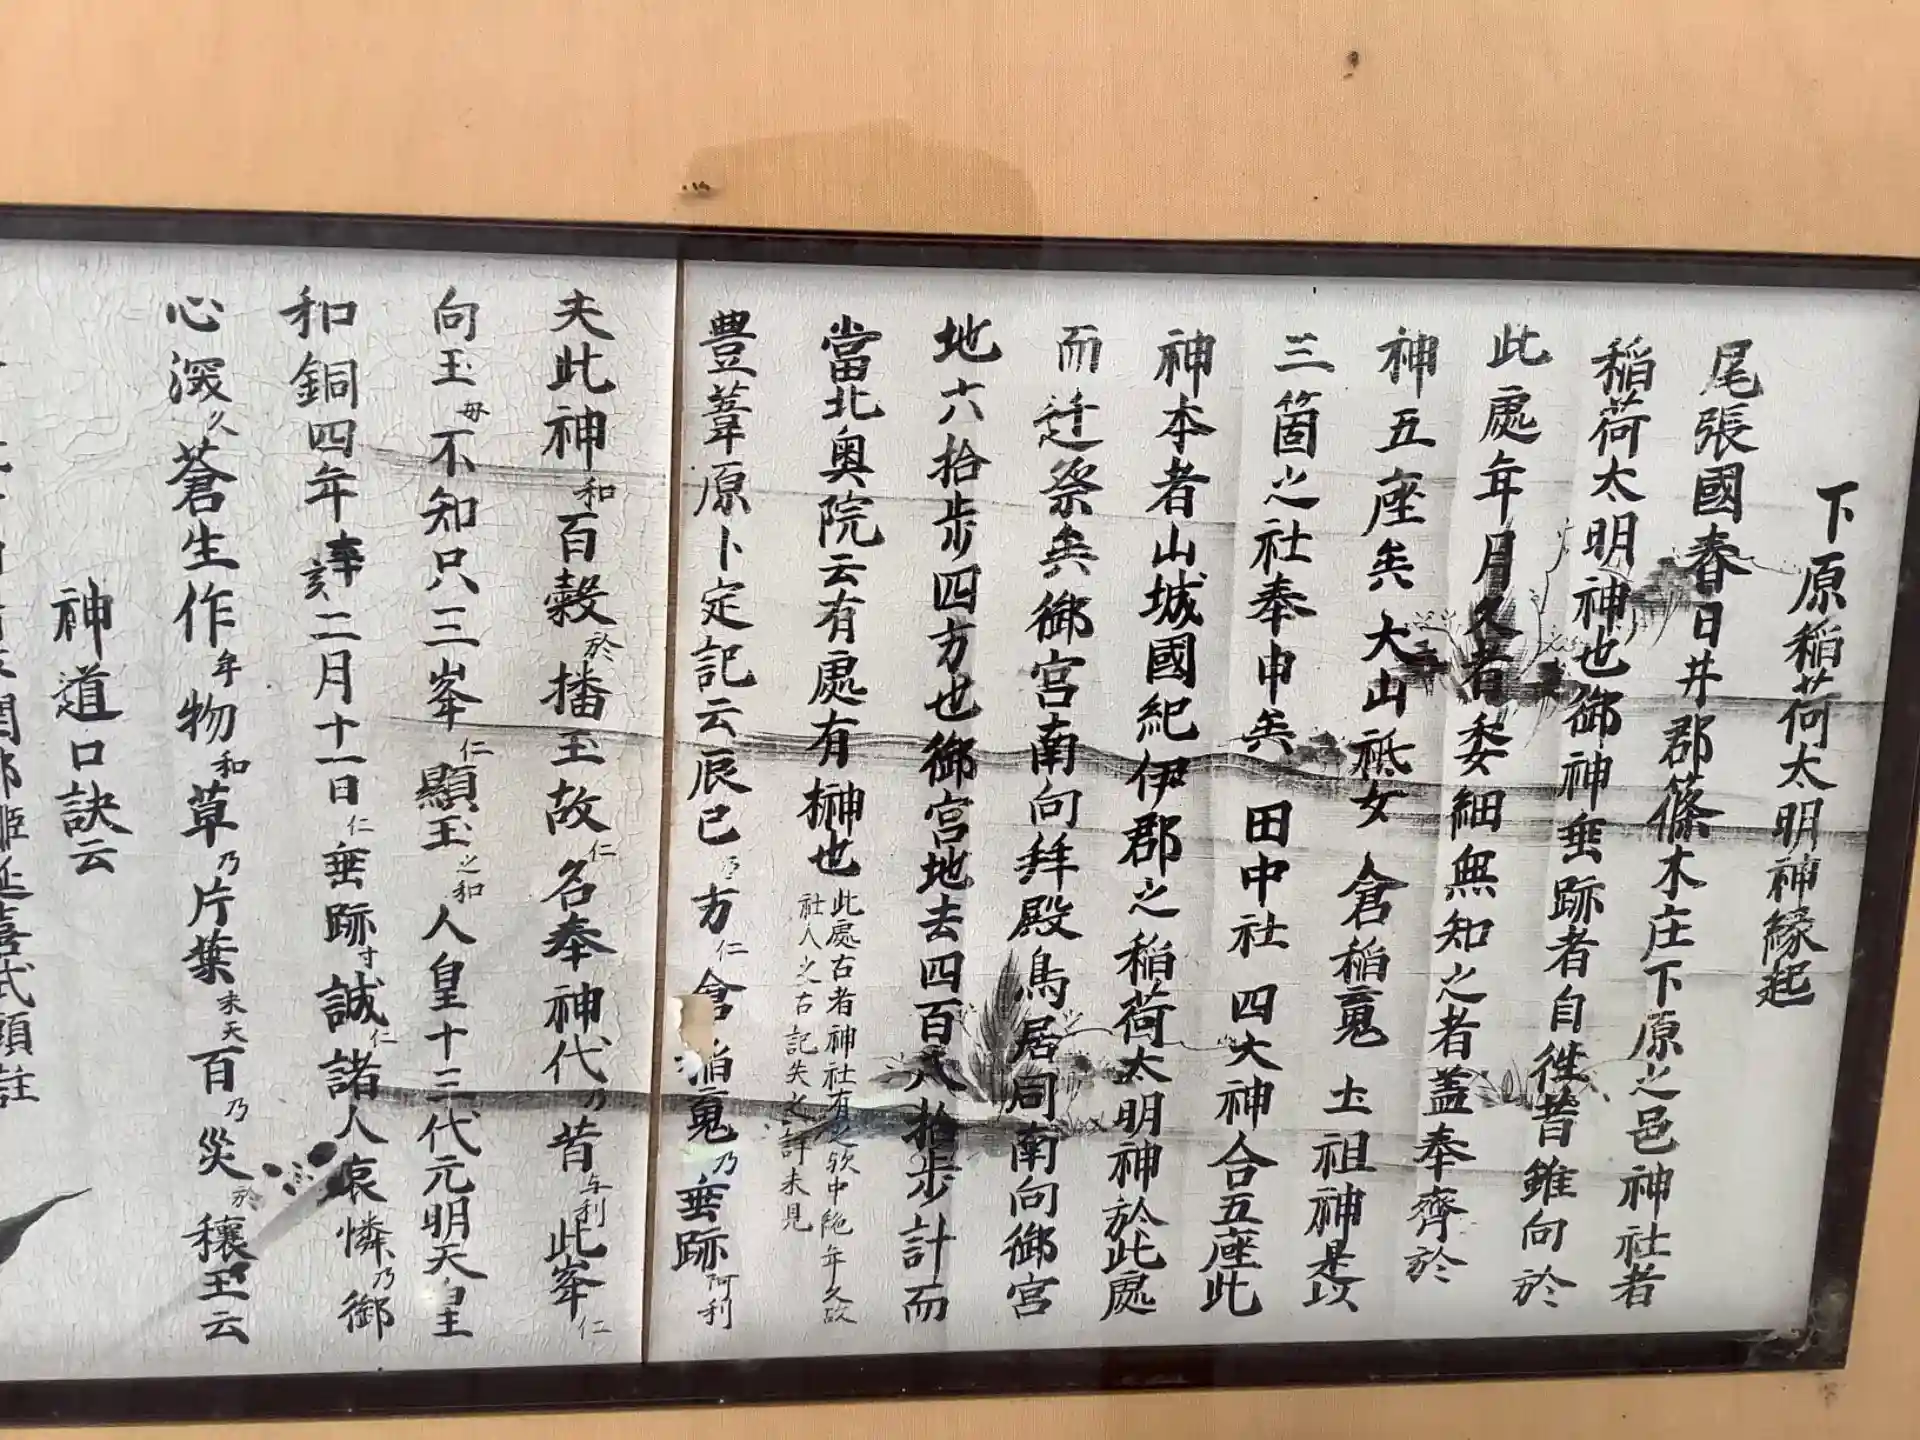 下原稲荷太明神縁起
尾張國春日井郡篠木庄下原之邑神社者
稲荷太明神也御神垂跡者自徃昔雖向於
此處年月久者委細無知之者蓋奉齊於
神五座矣大山祗女倉稲䰟土祖神是以
三箇之社奉申矣田中社四大神合五座此
神本者山城國紀伊郡之稲荷太明神於此處
而迁祭矣御宮南向拜殿鳥居同南向御宮
地六拾歩四方也御宮地去四百八拾歩計而
當北奥院云有處有榊也此處右者神社有之欤中絶年久故
社人之古記失之詳未見
豊葦原卜定記云辰巳乃方仁倉稲䰟乃垂跡阿利
夫此神和百穀於播玉故仁名奉神代乃昔与利此峯仁
向玉毋不知只三峯仁顯玉之和人皇十三代元明天皇
和銅四年辛亥二月十一日仁垂跡寸誠仁諸人哀憐乃御
心深久蒼生作年物和草乃片葉末天百乃災於穰玉云
神道口訣云
延喜式頭註